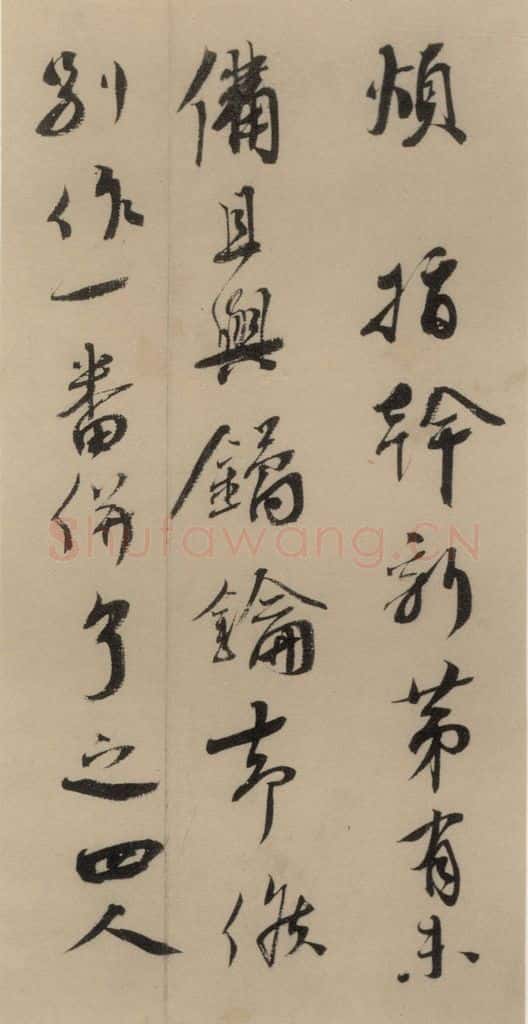 煩 指幹新第有未
備且與鐍鑰却候
別作一番併了之四人
Shufawang.CN